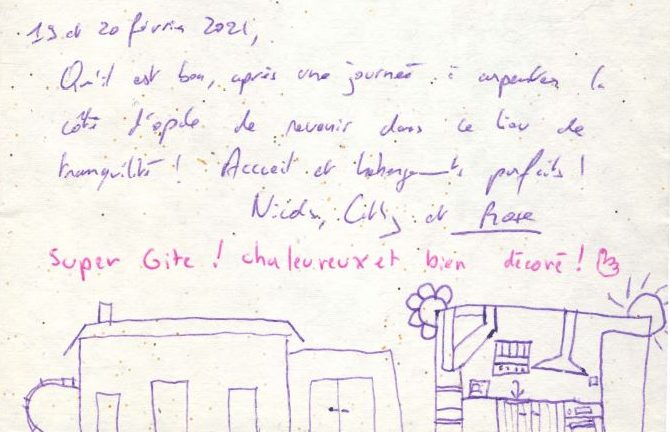 19 et 20 février 2021,
Qu'il est bon, après une journée à arpenter la
côte d'opale de revenir dans ce lieu de
tranquilité ! Accueil et hébergements parfaits !
Nicolas, Cathy et Rose
Super Gite ! chaleureux et bien décoré !